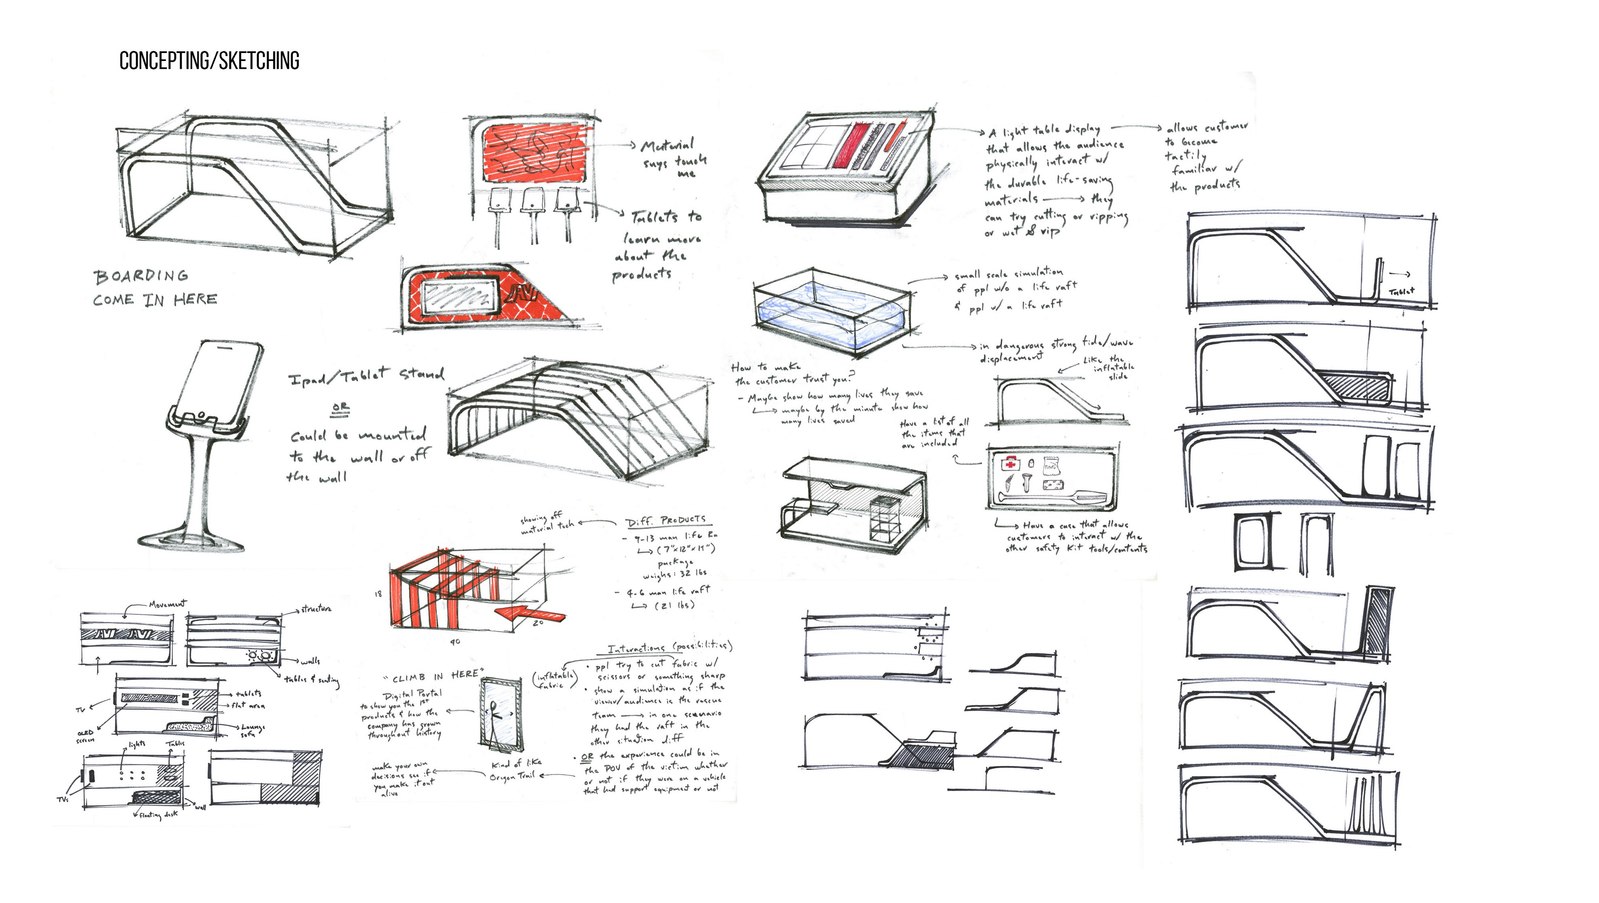 CONCEPTING/SKETCHING
BOARDING
COME IN HERE
Material
says touch
me
Tablets to
learn more
about the
products
Ipad/Tablet Stand
OR
Could be mounted
to the wall or off
the wall
A light table display
that allows the audience
physically interact w/
the durable life-saving
materials
they
can try cutting or ripping
or wet & rip
allows customer
to become
tactily
familiar w/
the products
small scale simulation
of ppl w/o a life raft
& ppl w/ a life raft
in dangerous strong tide/wave
displacement
Like the
inflatable
slide
How to make
the customer trust you?
- Maybe show how many lives they save
maybe by the minute show how
many lives saved
Have a list of all
the items that
are included
Have a case that allows
customers to interact w/ the
other safety kit tools/contents
Tablet
showing off
material tech
Diff. PRODUCTS
- 9-13 man life
(7"x12"x15")
package
weighs: 32 lbs
- 4-6 man life raft
(21 lbs)
18
40
20
Movement
structure
AVI AVI
walls
tables & seating
TV
OLED
screen
tablets
flat area
Lounge
sofa
lights
Table
TVs
floating desk
wall
"CLIMB IN HERE"
Digital Portal
to show you the 1st
products & how the
company has grown
throughout history
make your own
decisions see if
you make it out
alive
Kind of like
Oregon Trail
Interactions (possibilities)
(inflatable
fabric)
• ppl try to cut fabric w/
scissors or something sharp
• show a simulation as if the
viewer/audience is the rescue
team
in one scenario
they had the raft in the
other situation diff
• OR the experience could be in
the POV of the victim whether
or not if they were on a vehicle
that had support equipment or not